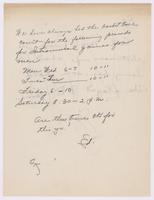 We have always let the basket ball
court for the following periods
for Intramural games for
men
Mon Wed 6-7 10-11
Tues Thur 10-11
Friday 6-10
Saturday 8:30-2
Are these times OK for
this yr.
Ed.